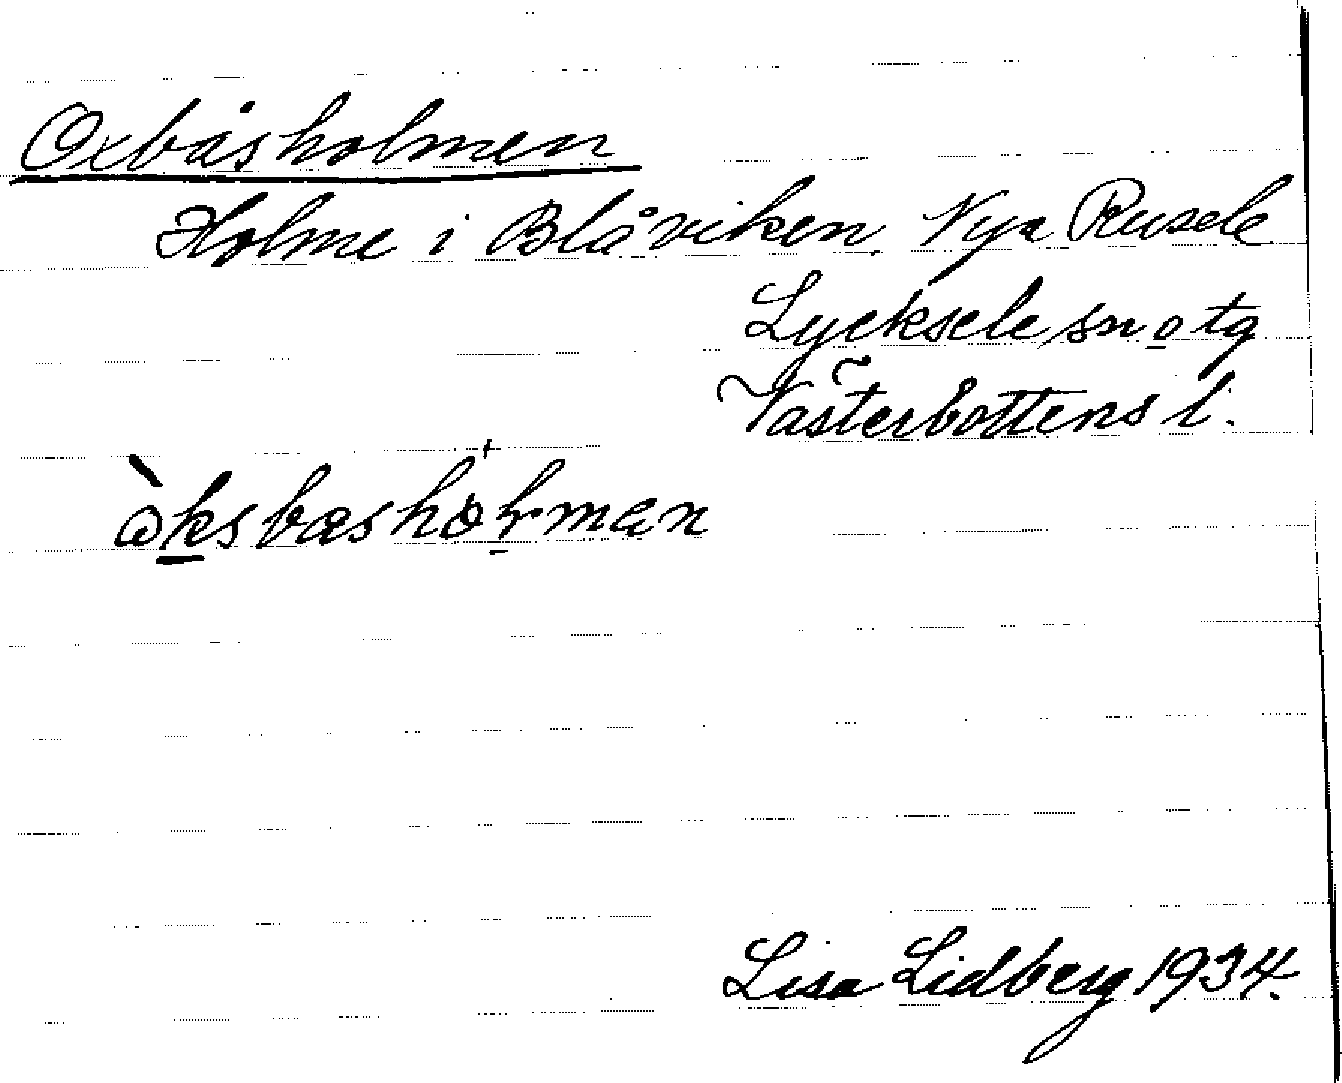 Oxbåsholmen
Holme i Blåviken. Nya Rusele
Lycksele sn o tg
Västerbottens l.
Lisa Lidberg 1934.